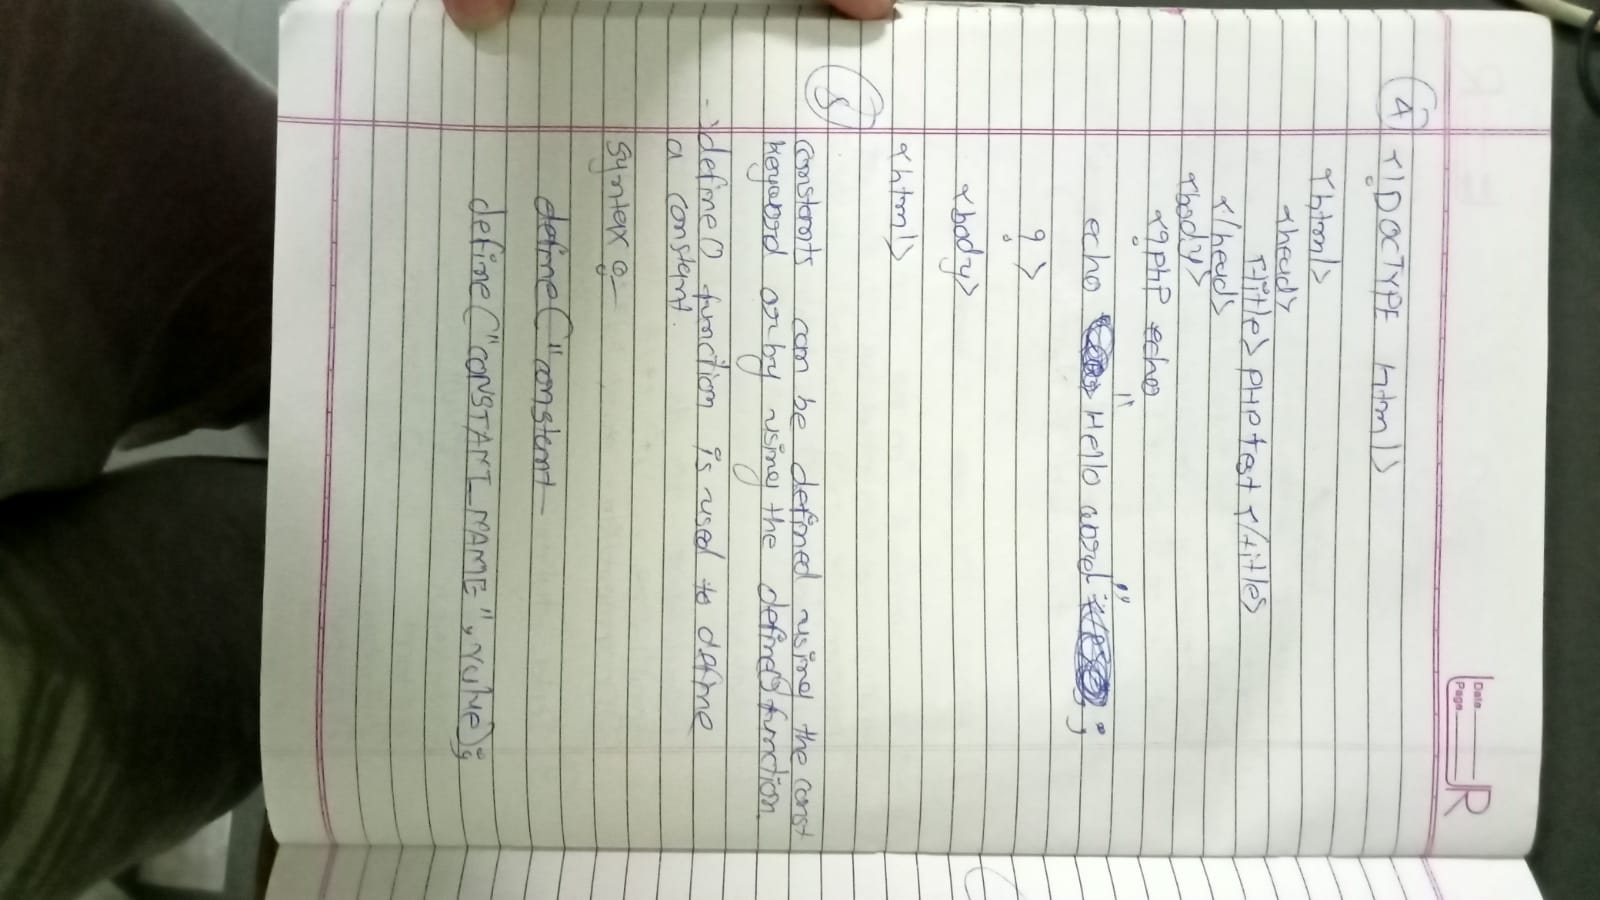 Date
Page
R
4 <!DOCTYPE html>
<html>
<head>
<title> PHP test </title>
</head>
<body>
<?PHP echo
echo "Hello word" ;
?>
<body>
<html>
5
constents can be defined using the const
keyword or by using the define() function.
- define() function is used to define
a constent.
Syntex :-
define("constent
define("CONSTANT_NAME", value);